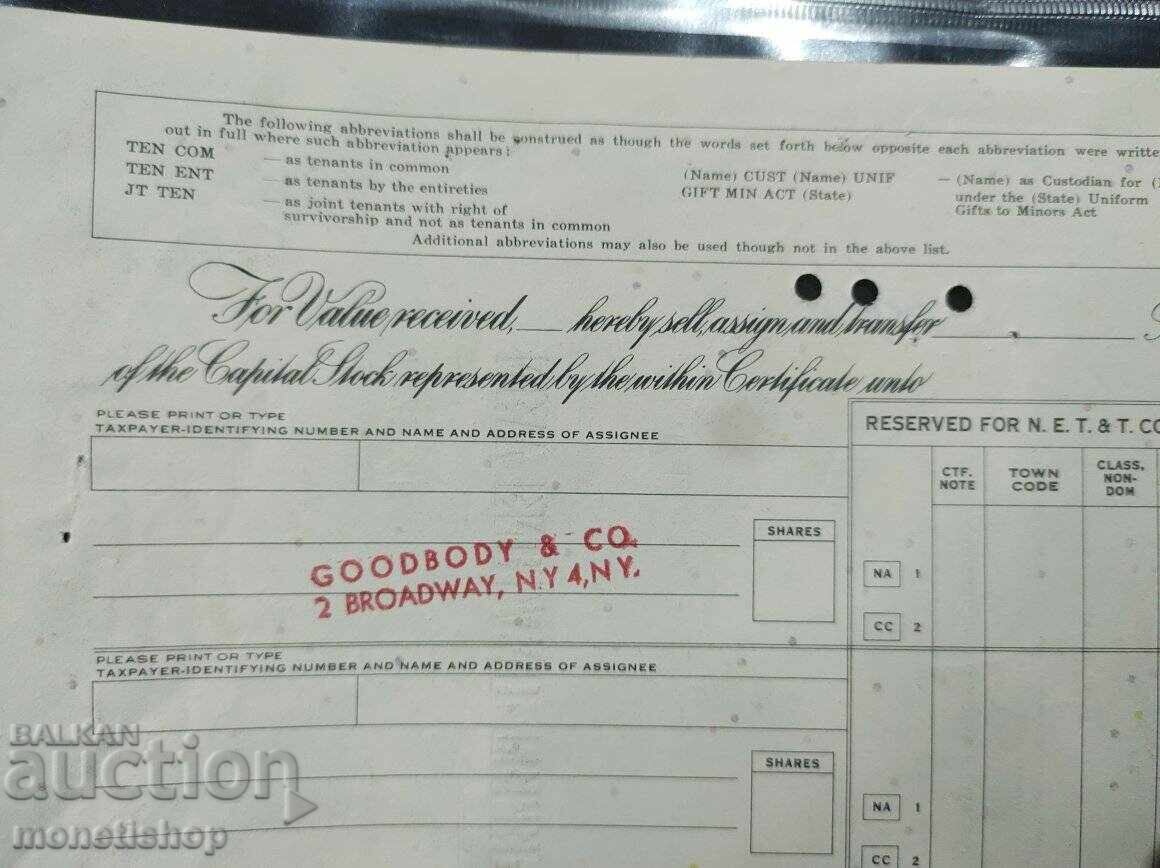 The following abbreviations shall be construed as though the words set forth below opposite each abbreviation were writte
out in full where such abbreviation appears:
TEN COM — as tenants in common
TEN ENT — as tenants by the entireties
JT TEN — as joint tenants with right of
survivorship and not as tenants in common
(Name) CUST (Name) UNIF — (Name) as Custodian for (
GIFT MIN ACT (State) under the (State) Uniform
Gifts to Minors Act
Additional abbreviations may also be used though not in the above list.
For Value received, ___ hereby sell, assign, and transfer
of the Capital Stock represented by the within Certificate unto
PLEASE PRINT OR TYPE
TAXPAYER-IDENTIFYING NUMBER AND NAME AND ADDRESS OF ASSIGNEE
RESERVED FOR N. E. T. & T. CO
CTF. NOTE
TOWN CODE
CLASS, NON-DOM
SHARES
GOODBODY & CO.
2 BROADWAY, N.Y 4, NY.
NA 1
CC 2
PLEASE PRINT OR TYPE
TAXPAYER-IDENTIFYING NUMBER AND NAME AND ADDRESS OF ASSIGNEE
SHARES
NA 1
CC 2
BALKAN
auction
monetishop